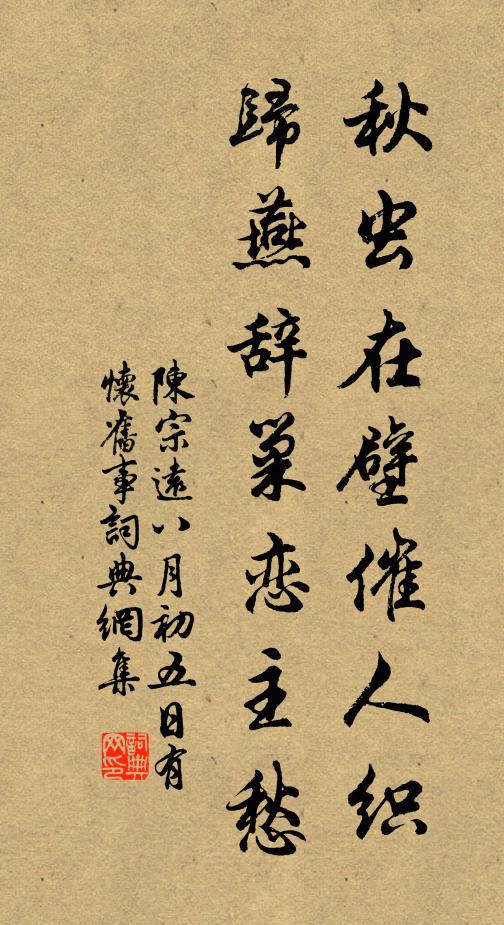 秋虫在壁催人织
歸燕辞巢恋主愁
陳宗遠八月初五日有
懷舊事詞典網集
詞典网印